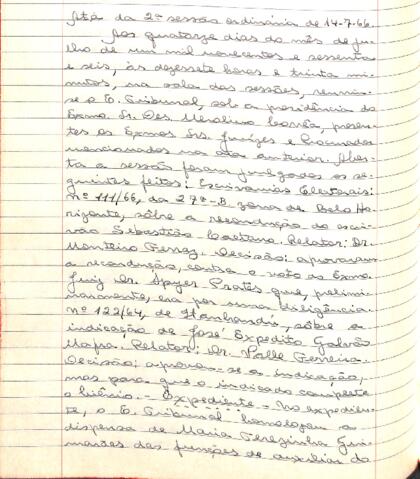 Ata da 2ª sessão ordinária de 14-7-66.
Aos quatorze dias do mês de ju-
lho de um mil novecentos e sessenta
e seis, às dezessete horas e trinta mi-
nutos, na sala das sessões, reuniu-
se o E. Tribunal, sob a presidência do
Exmo. Sr. Des. Merolino Corrêa, presen-
tes os Exmos Srs. Juízes e Procurador
mencionados na ata anterior. Aber-
ta a sessão foram julgados os se-
guintes feitos: Escrivanias Eleitorais:
nº 111/66, da 27ª-B zona de Belo Ho-
rizonte, sôbre a recondução do escri-
vão Sebastião Caetano. Relator: Dr.
Monteiro Ferraz. Decisão: aprovaram
a recondução, contra o voto do Exmo.
Juiz Dr. Prates que, prelimi-
narmente, era por uma diligência.
nº 122/64, de Itanhandú, sôbre a
indicação de José Expedito Galvão
Mafra. Relator: Dr. Valle Ferreira.
Decisão: aprovou-se a indicação,
mas para que o indicado complete
o biênio. - Expediente - No expedien-
te, o E. Tribunal homologou a
dispensa de Maria Terezinha Gui-
marães das funções de auxiliar do